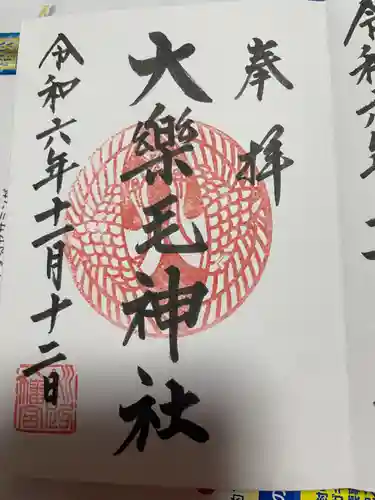 奉拝
大樂毛神社
令和六年十一月十二日